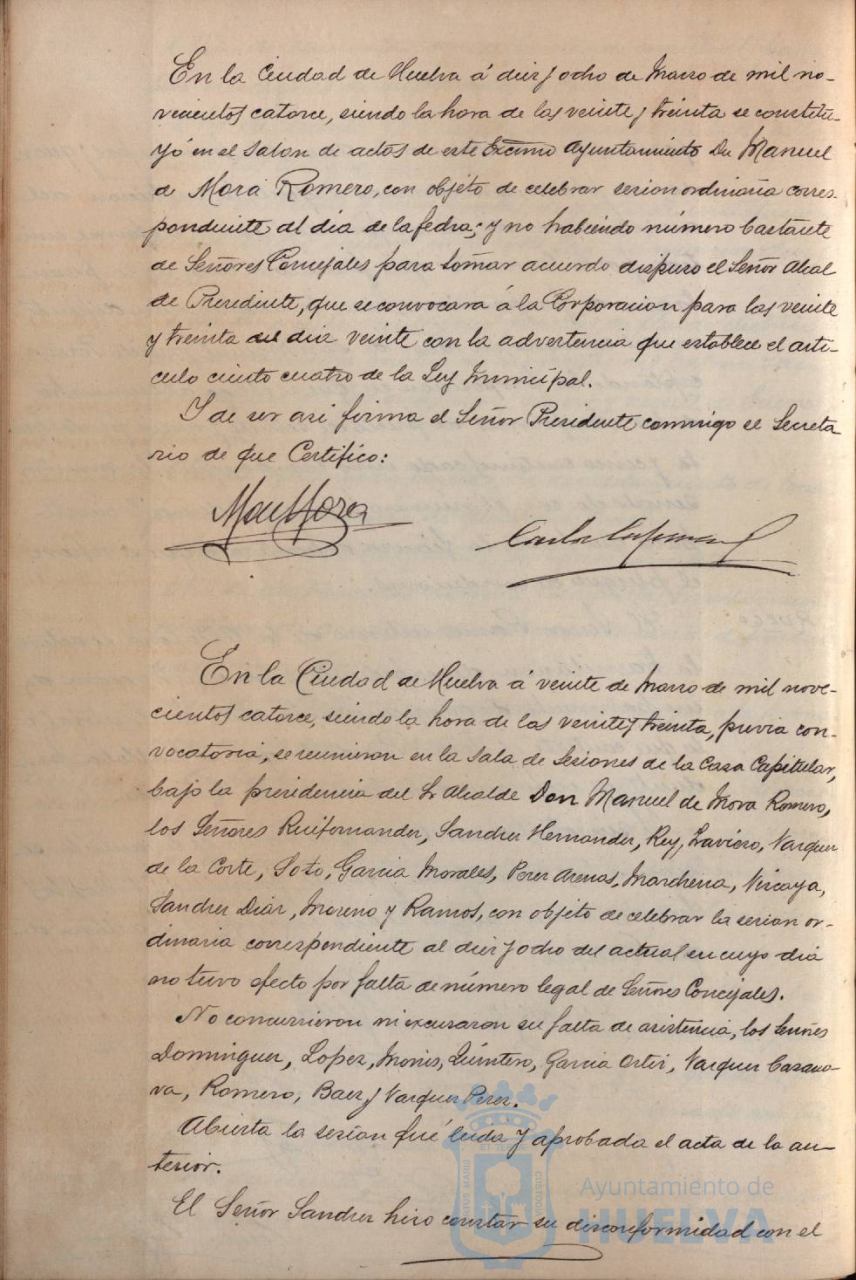 En la Ciudad de Huelva á diez y ocho de Marzo de mil no-
vecientos catorce, siendo la hora de las veinte y treinta se constitu-
yó en el Salon de actos de este Excmo Ayuntamiento Dn Manuel
de Mora Romero, con objeto de celebrar sesion ordinaria corres-
pondiente al dia de la fecha; y no habiendo número bastante
de Señores Concejales para tomar acuerdo dispuso el Señor Alcal
de Presidente, que se convocara á la Corporacion para las veinte
y treinta del dia veinte con la advertencia que establece el arti-
culo ciento cuatro de la Ley Municipal.
Y de ser asi firma el Señor Presidente conmigo el Secreta
rio de que Certifico:
En la Ciudad de Huelva á veinte de Marzo de mil nove-
cientos catorce, siendo la hora de las veinte y treinta, previa con-
vocatoria, se reunieron en la Sala de Sesiones de la Casa Capitular,
bajo la presidencia del Sr Alcalde Don Manuel de Mora Romero,
los Señores Ruifernandez, Sanchez Hernandez, Rey, Vazquez
de la Corte, Soto, Garcia Morales, Perez Arenas, Marchena, Vizcaya,
Sanchez Diaz, Moreno y Ramos, con objeto de celebrar la sesion or-
dinaria correspondiente al diez y ocho del actual en cuyo dia
no tuvo efecto por falta de número legal de Señores Concejales.
No concurrieron ni excusaron su falta de asistencia, los Señores
Dominguez, Lopez, Monis, Quintero, Garcia Ortiz, Vazquez Casano-
va, Romero, Baez y Vazquez Perez.
Abierta la sesion fué leida y aprobada el acta de la an-
terior.
El Señor Sanchez hizo constar su disconformidad con el
Ayuntamiento de
HUELVA